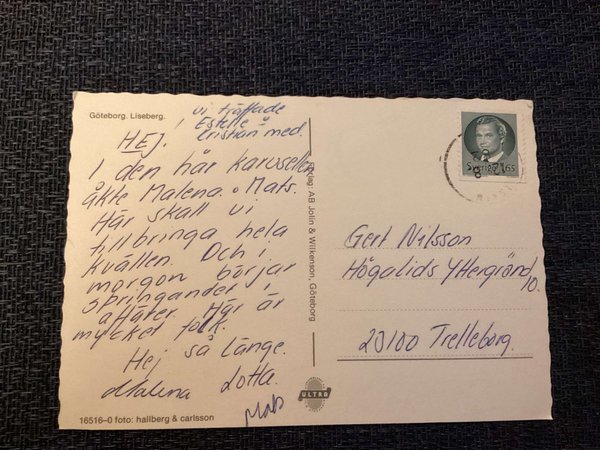 Göteborg. Liseberg.
vi träffade
Estelle o
Cristian med.
HEJ.
I den här karusellen
åkte Malena. o Mats.
Här skall vi
tillbringa hela
kvällen. Och i
morgon börjar
springandet i
affärer. Här är
mycket folk.
Hej så länge.
Malena Lotta.
Mats
16516-0 foto: hallberg & carlsson
Förlag: AB Jolin & Wilkenson, Göteborg
ULTRA
Sverige 165
Gert Nilsson
Högalids Yttergränd
10.
23100 Trelleborg.